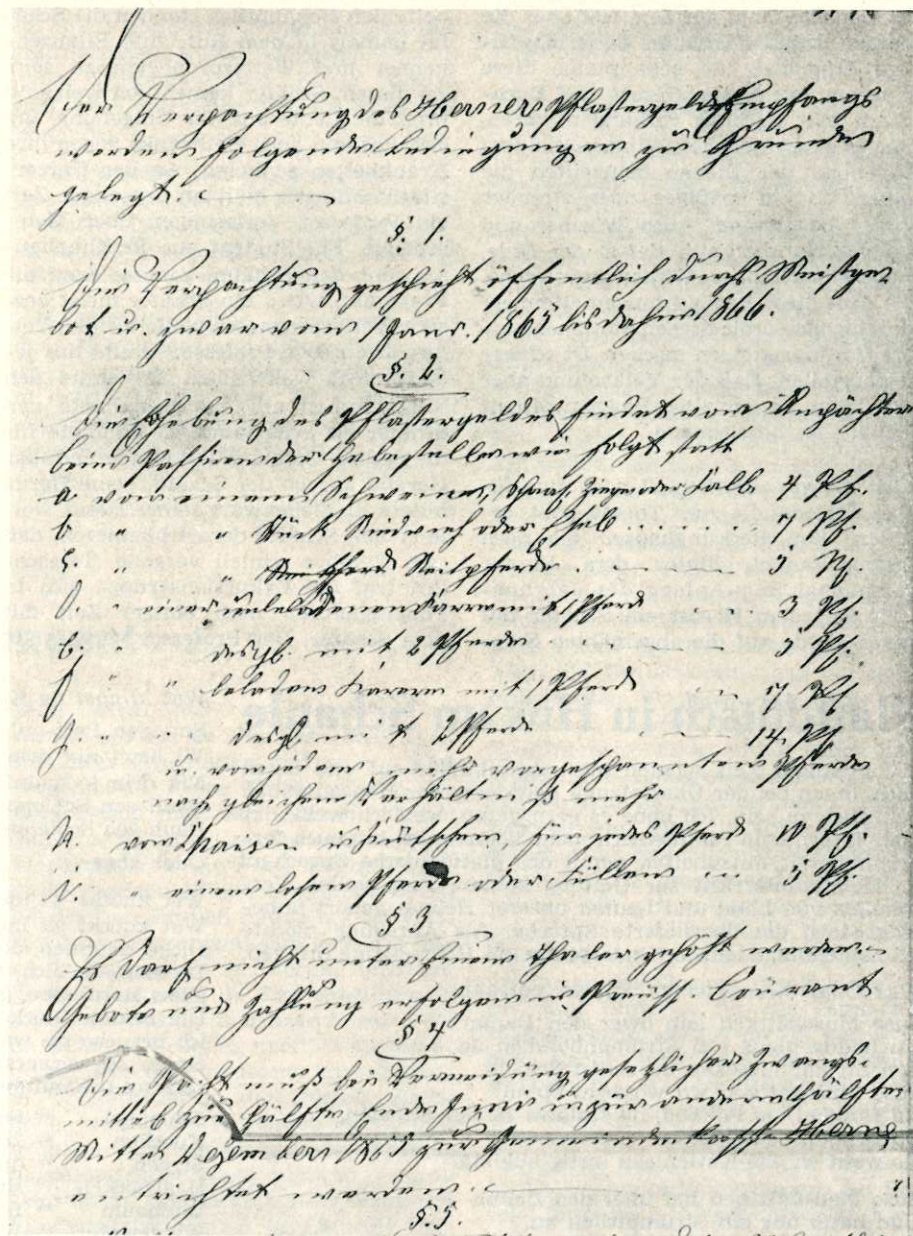 Der Verpachtung des Herner Pflastergeld Empfangs
werden folgende Bedingungen zu Grunde
gelegt.
§. 1.
Die Verpachtung geschieht öffentlich durchs Meistge-
bot u. zwar vom 1 Janr. 1865 bis dahin 1866.
§. 2.
Die Erhebung des Pflastergeldes findet vom Anpächter
beim Passiren der Hebestelle wie folgt statt
a von einem Schweine, Schaaf, Ziege oder Kalb 4 Pf.
b. " " Stück Rindvieh oder Esel ...... 7 Pf.
c. " " Reitpferde — — 3 Pf.
d. " einer unbeladenen Karre mit 1 Pferd .. 3 Pf.
e. " " desgl. mit 2 Pferde — 3 Pf.
f " " beladene Karren mit 1 Pferd — 7 Pf
g. " " desgl. mit 2 Pferde — 14. Pf
u. von jedem mehr vorgespannten Pferde
nach gleichem Verhältniß mehr
h. von Chaisen u Kutschen, für jedes Pferd 10 Pf.
i. " einem losen Pferde oder Füllen ... 3 Pf.
§ 3
Es darf nicht unter Einem Thaler gehöht werden.
Gebote und Zahlung erfolgen in Preuss. Courant
§ 4
Die Pacht muß bei Vermeidung gesetzlicher Zwangs-
mittel zur Hälfte Ende Juni u zur anderen Hälfte
Mitte Dezember 1865 zur Gemeindekasse Herne
entrichtet werden.
§. 5.